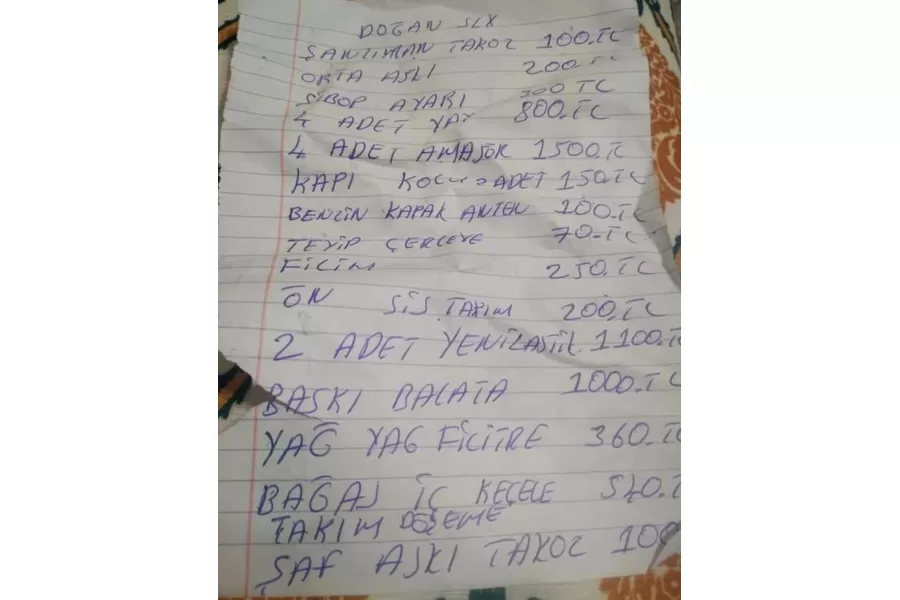 DOĞAN SLX
ŞANZIMAN TAKOZ 100.TC
ORTA ASKI 200 TC
SİBOP AYARI 300 TC
4 ADET YAY 800.TC
4 ADET AMASÖR 1500.TC
KAPI KOLU ADET 150.TC
BENZİN KAPAK ANTEN 100.TC
TEYİP ÇERCEVE 70.TC
FİLİM 250.TC
ÖN SİS TAKIM 200.TC
2 ADET YENİ LASTİK 1100.TC
BASKI BALATA 1000.TC
YAĞ YAG FİLİTRE 360.TC
BAĞAJ İÇ KEÇELE 540.T
TAKIM DÖŞEME
ŞAF ASKI TAKOZ 100